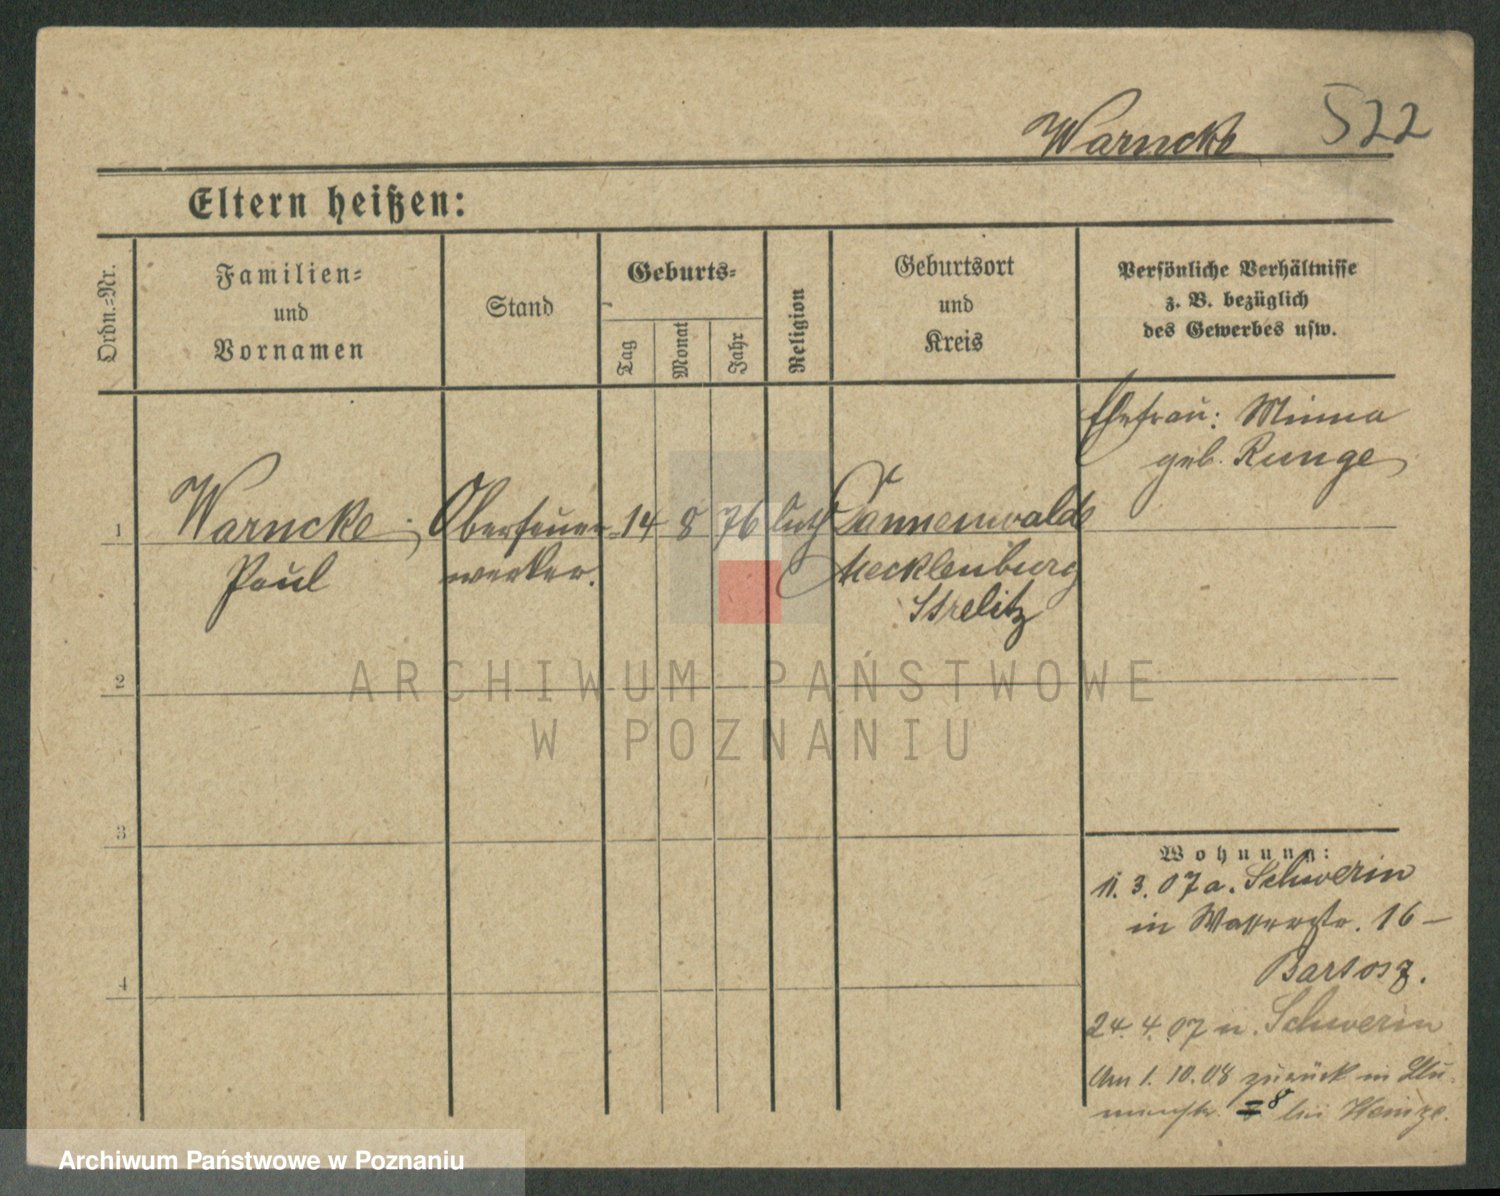 Warncke 522
Eltern heißen:
Ordn.-Nr.
Familien-
und
Vornamen
Stand
Geburts-
Tag
Monat
Jahr
Religion
Geburtsort
und
Kreis
Persönliche Verhältnisse
z. B. bezüglich
des Gewerbes usw.
Ehefrau: Minna
geb. Runge
1 Warncke Oberfeuer- 14 8 76 luth Tannenwalde
Paul werker. Mecklenburg
Strelitz
2
3
4
Wohnung:
11. 3. 07 a. Schwerin
in Wasserstr. 16 –
Bartosz.
24. 4. 07 n. Schwerin
Am 1. 10. 08 zurück in Blu-
menstr. 8 bei Heinze.
ARCHIWUM PAŃSTWOWE
W POZNANIU
Archiwum Państwowe w Poznaniu